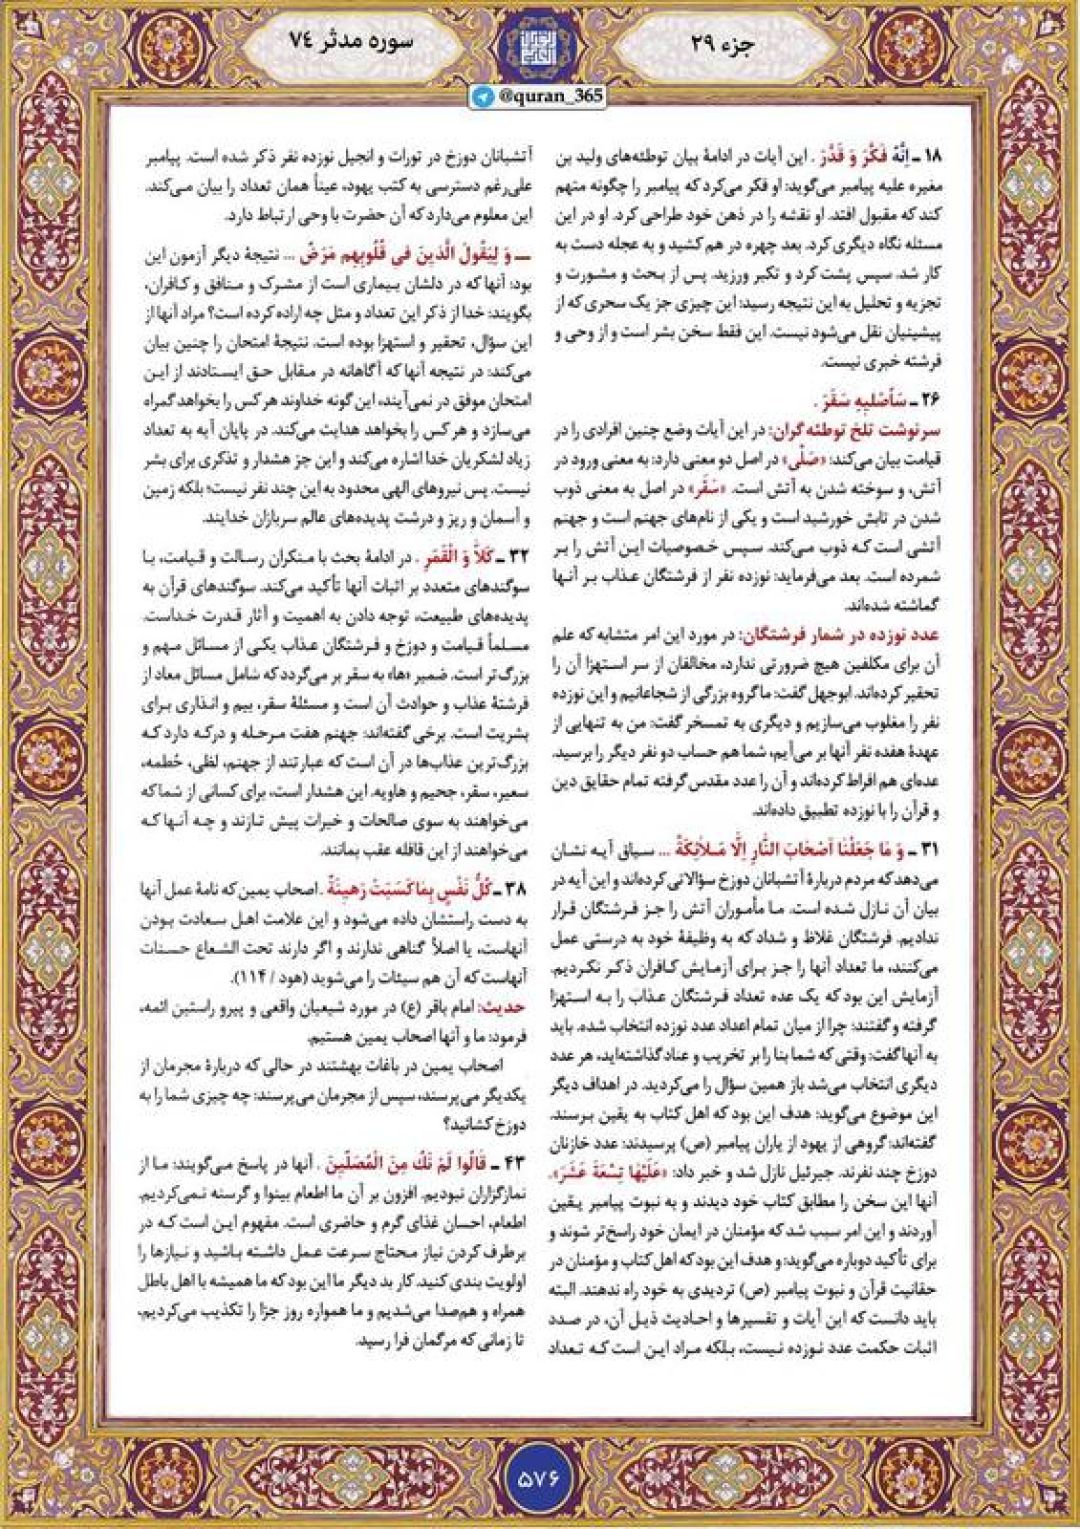 جزء ۲۹
سوره مدثر ۷۴
@quran_365
۱۸ ـ اِنَّهُ فَکَّرَ وَ قَدَّرَ . این آیات در ادامهٔ بیان توطئه‌های ولید بن
مغیره علیه پیامبر می‌گوید: او فکر می‌کرد که پیامبر را چگونه متهم
کند که مقبول افتد. او نقشه را در ذهن خود طراحی کرد. او در این
مسئله نگاه دیگری کرد. بعد چهره در هم کشید و به عجله دست به
کار شد. سپس پشت کرد و تکبر ورزید. پس از بحث و مشورت و
تجزیه و تحلیل به این نتیجه رسید: این چیزی جز یک سحری که از
پیشینیان نقل می‌شود نیست. این فقط سخن بشر است و از وحی و
فرشته خبری نیست.
۲۶ ـ سَأُصْلِیهِ سَقَرَ .
سرنوشت تلخ توطئه گران: در این آیات وضع چنین افرادی را در
قیامت بیان می‌کند: «صَلْی» در اصل دو معنی دارد: به معنی ورود در
آتش، و سوخته شدن به آتش است. «سَقَر» در اصل به معنی ذوب
شدن در تابش خورشید است و یکی از نام‌های جهنم است و جهنم
آتشی است که ذوب می‌کند. سپس خصوصیات این آتش را بر
شمرده است. بعد می‌فرماید: نوزده نفر از فرشتگان عذاب بر آنها
گماشته شده‌اند.
عدد نوزده در شمار فرشتگان: در مورد این امر متشابه که علم
آن برای مکلفین هیچ ضرورتی ندارد، مخالفان از سر استهزا آن را
تحقیر کرده‌اند. ابوجهل گفت: ما گروه بزرگی از شجاعانیم و این نوزده
نفر را مغلوب می‌سازیم و دیگری به تمسخر گفت: من به تنهایی از
عهدهٔ هفده نفر آنها بر می‌آیم، شما هم حساب دو نفر دیگر را برسید.
عده‌ای هم افراط کرده‌اند و آن را عدد مقدس گرفته تمام حقایق دین
و قرآن را با نوزده تطبیق داده‌اند.
۳۱ ـ وَ مَا جَعَلْنَا اَصْحَابَ النَّارِ اِلَّا مَلَائِکَةً ... سیاق آیه نشان
می‌دهد که مردم دربارهٔ آتشبانان دوزخ سؤالاتی کرده‌اند و این آیه در
بیان آن نازل شده است. ما مأموران آتش را جز فرشتگان قرار
ندادیم. فرشتگان غلاظ و شداد که به وظیفهٔ خود به درستی عمل
می‌کنند، ما تعداد آنها را جز برای آزمایش کافران ذکر نکردیم.
آزمایش این بود که یک عده تعداد فرشتگان عذاب را به استهزا
گرفته و گفتند: چرا از میان تمام اعداد عدد نوزده انتخاب شده. باید
به آنها گفت: وقتی که شما بنا را بر تخریب و عناد گذاشته‌اید، هر عدد
دیگری انتخاب می‌شد باز همین سؤال را می‌کردید. در اهداف دیگر
این موضوع می‌گوید: هدف این بود که اهل کتاب به یقین برسند.
گفته‌اند: گروهی از یهود از یاران پیامبر (ص) پرسیدند: عدد خازنان
دوزخ چند نفرند. جبرئیل نازل شد و خبر داد: «عَلَیْهَا تِسْعَةَ عَشَرَ».
آنها این سخن را مطابق کتاب خود دیدند و به نبوت پیامبر یقین
آوردند و این امر سبب شد که مؤمنان در ایمان خود راسخ‌تر شوند و
برای تأکید دوباره می‌گوید: و هدف این بود که اهل کتاب و مؤمنان در
حقانیت قرآن و نبوت پیامبر (ص) تردیدی به خود راه ندهند. البته
باید دانست که این آیات و تفسیرها و احادیث ذیل آن، در صدد
اثبات حکمت عدد نوزده نیست، بلکه مراد این است که تعداد
آتشبانان دوزخ در تورات و انجیل نوزده نفر ذکر شده است. پیامبر
علی‌رغم دسترسی به کتب یهود، عیناً همان تعداد را بیان می‌کند.
این معلوم می‌دارد که آن حضرت با وحی ارتباط دارد.
ــ وَ لِیَقُولَ الَّذِینَ فِی قُلُوبِهِم مَرَضٌ ... نتیجهٔ دیگر آزمون این
بود: آنها که در دلشان بیماری است از مشرک و منافق و کافران،
بگویند: خدا از ذکر این تعداد و مثل چه اراده کرده است؟ مراد آنها از
این سؤال، تحقیر و استهزا بوده است. نتیجهٔ امتحان را چنین بیان
می‌کند: در نتیجه آنها که آگاهانه در مقابل حق ایستادند از این
امتحان موفق در نمی‌آیند، این گونه خداوند هر کس را بخواهد گمراه
می‌سازد و هر کس را بخواهد هدایت می‌کند. در پایان آیه به تعداد
زیاد لشکریان خدا اشاره می‌کند و این جز هشدار و تذکری برای بشر
نیست. پس نیروهای الهی محدود به این چند نفر نیست؛ بلکه زمین
و آسمان و ریز و درشت پدیده‌های عالم سربازان خدایند.
۳۲ ـ کَلَّا وَ الْقَمَرِ . در ادامهٔ بحث با منکران رسالت و قیامت، با
سوگندهای متعدد بر اثبات آنها تأکید می‌کند. سوگندهای قرآن به
پدیده‌های طبیعت، توجه دادن به اهمیت و آثار قدرت خداست.
مسلماً قیامت و دوزخ و فرشتگان عذاب یکی از مسائل مهم و
بزرگ‌تر است. ضمیر «ها» به سقر بر می‌گردد که شامل مسائل معاد از
فرشتهٔ عذاب و حوادث آن است و مسئلهٔ سقر، بیم و انذاری برای
بشریت است. برخی گفته‌اند: جهنم هفت مرحله و درکه دارد که
بزرگ‌ترین عذاب‌ها در آن است که عبارتند از جهنم، لظی، حُطمه،
سعیر، سقر، جحیم و هاویه. این هشدار است، برای کسانی از شما که
می‌خواهند به سوی صالحات و خیرات پیش تازند و چه آنها که
می‌خواهند از این قافله عقب بمانند.
۳۸ ـ کُلُّ نَفْسٍ بِمَا کَسَبَتْ رَهِینَةٌ . اصحاب یمین که نامهٔ عمل آنها
به دست راستشان داده می‌شود و این علامت اهل سعادت بودن
آنهاست، یا اصلاً گناهی ندارند و اگر دارند تحت الشعاع حسنات
آنهاست که آن هم سیئات را می‌شوید (هود / ۱۱۴).
حدیث: امام باقر (ع) در مورد شیعیان واقعی و پیرو راستین ائمه،
فرمود: ما و آنها اصحاب یمین هستیم.
اصحاب یمین در باغات بهشتند در حالی که دربارهٔ مجرمان از
یکدیگر می‌پرسند، سپس از مجرمان می‌پرسند: چه چیزی شما را به
دوزخ کشانید؟
۴۳ ـ قَالُوا لَمْ نَكُ مِنَ الْمُصَلِّینَ . آنها در پاسخ می‌گویند: ما از
نمازگزاران نبودیم. افزون بر آن ما اطعام بینوا و گرسنه نمی‌کردیم.
اطعام، احسان غذای گرم و حاضری است. مفهوم این است که در
برطرف کردن نیاز محتاج سرعت عمل داشته باشید و نیازها را
اولویت بندی کنید. کار بد دیگر ما این بود که ما همیشه با اهل باطل
همراه و هم‌صدا می‌شدیم و ما همواره روز جزا را تکذیب می‌کردیم،
تا زمانی که مرگمان فرا رسید.
۵۷۶